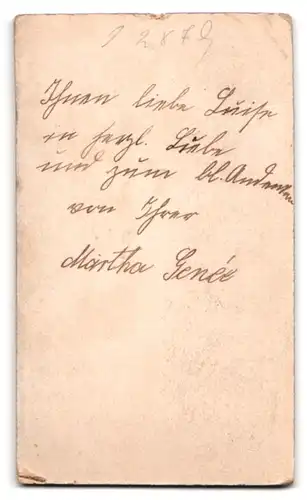 Ihnen liebe Luise
in herzl. Liebe
und zum bl. Andenken
von Ihrer
Martha Genée